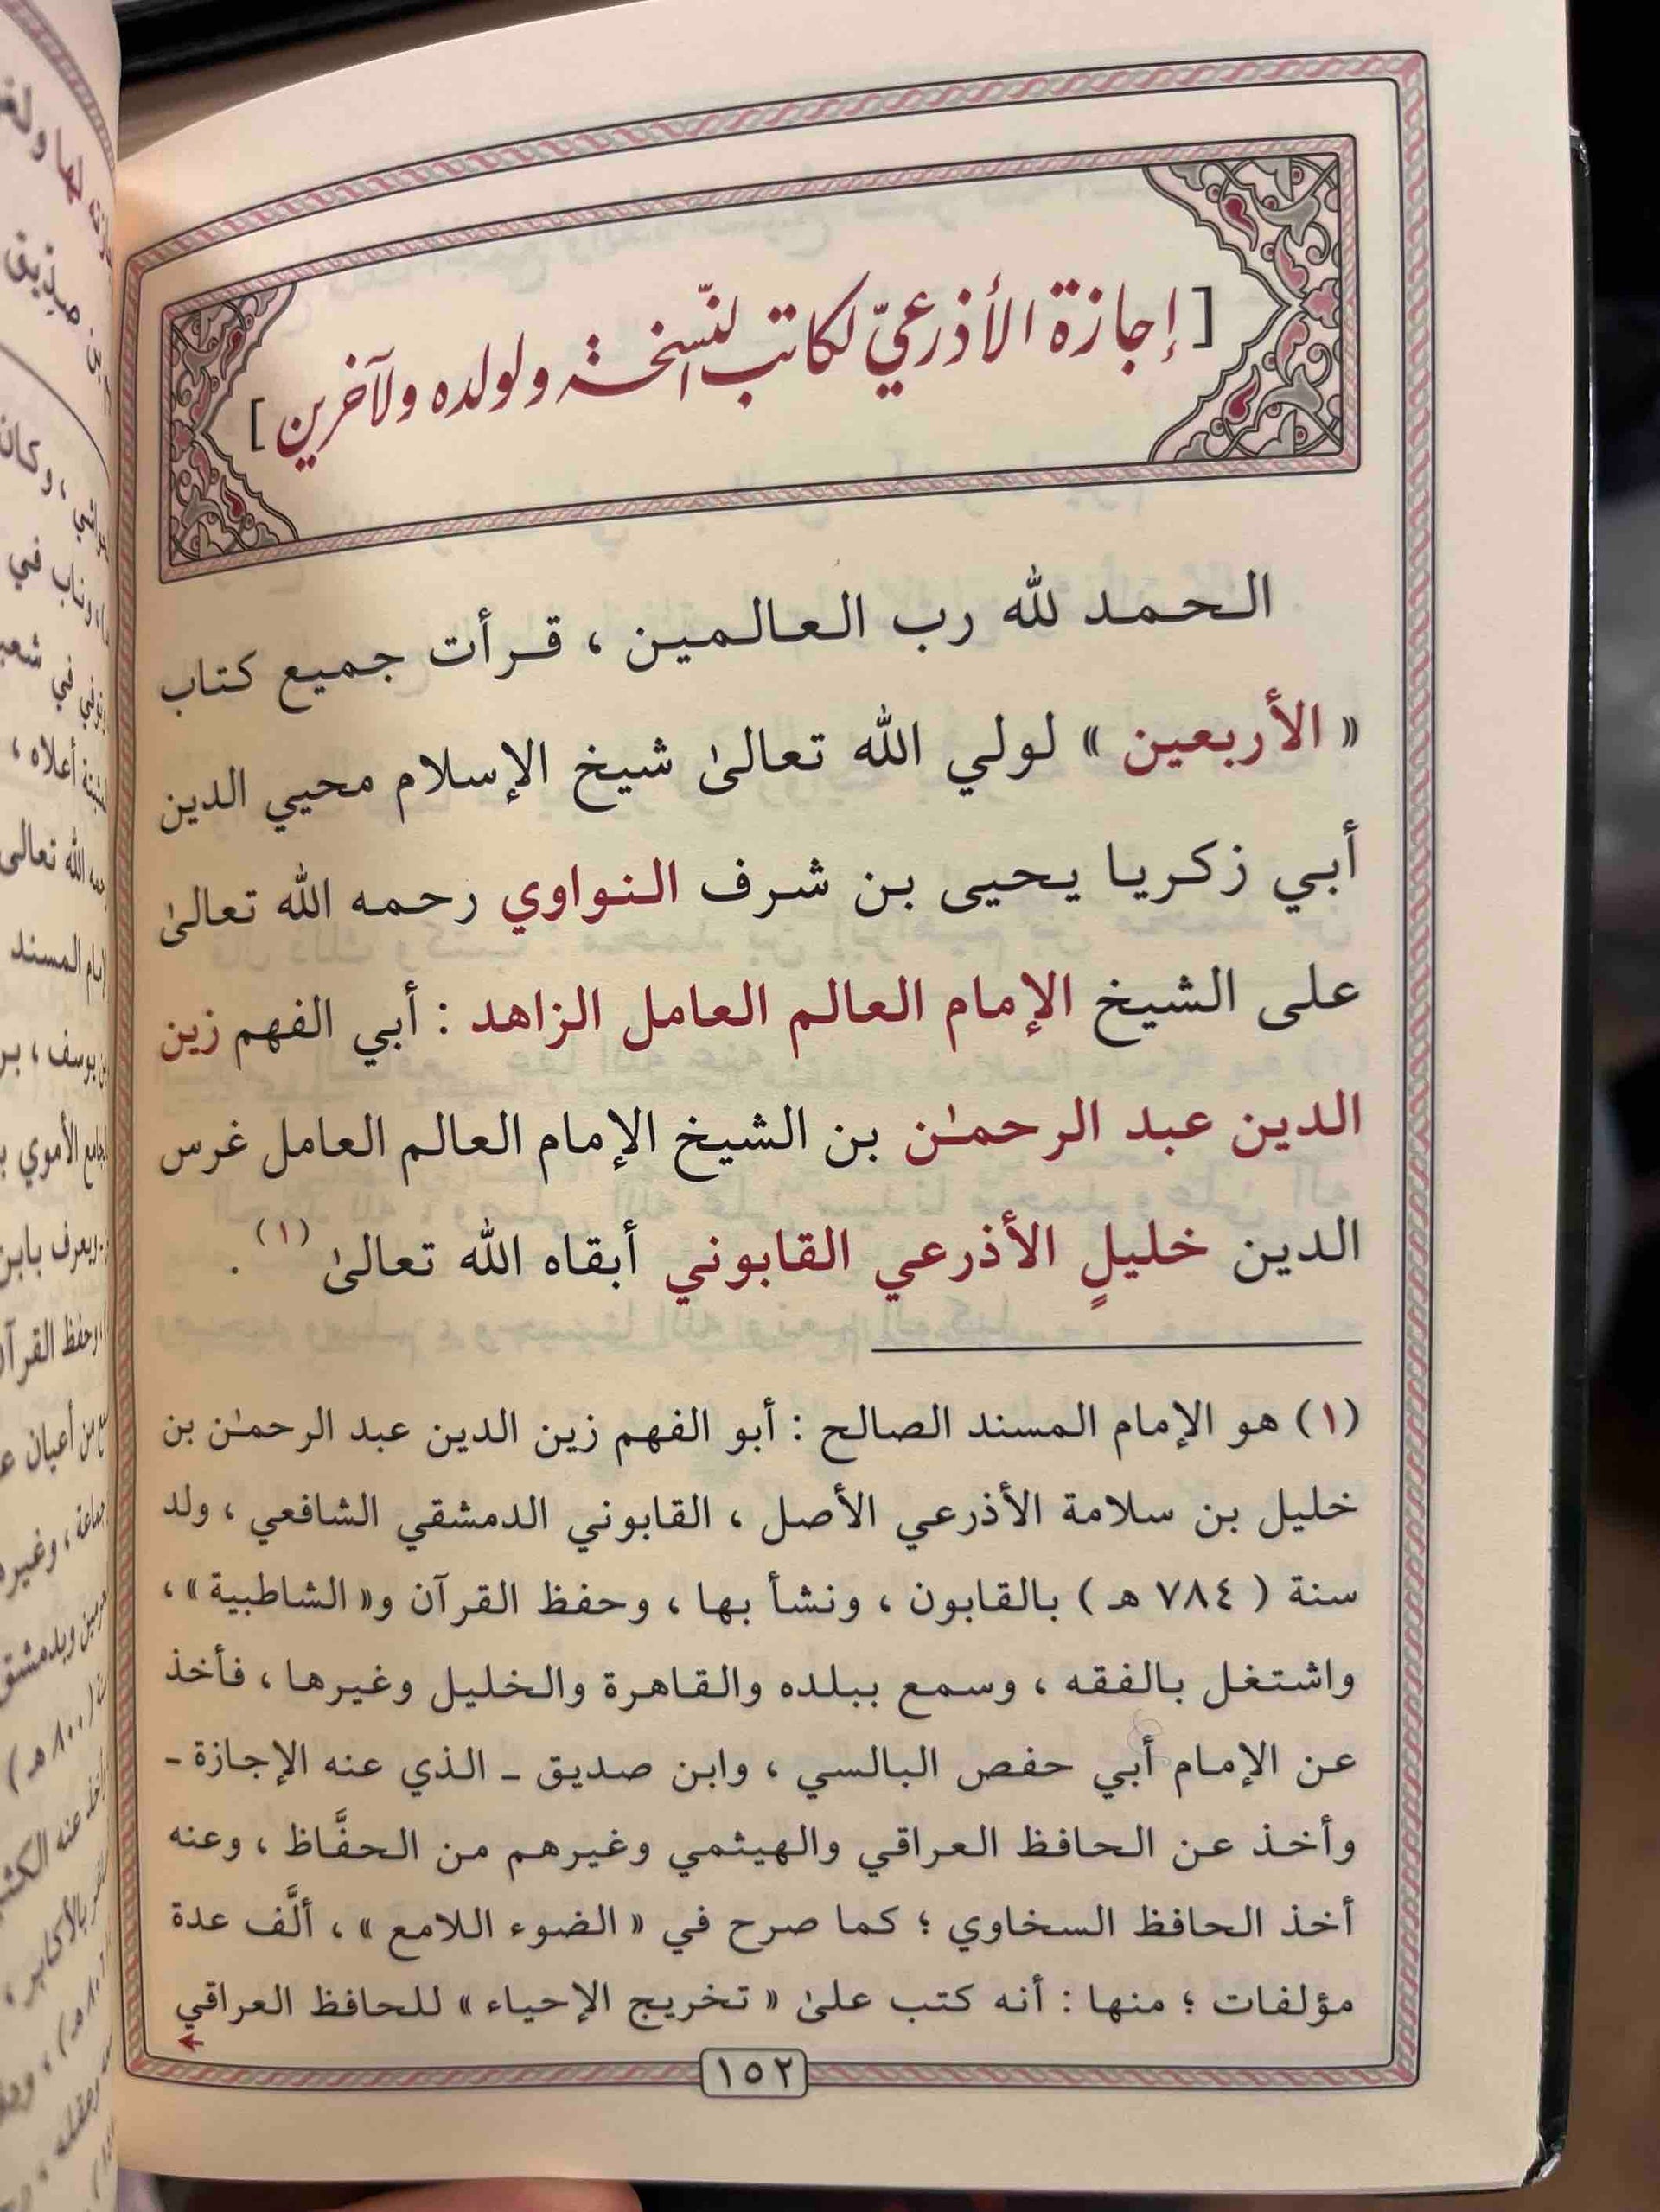 [ إجازة الأذرعيّ لكاتب النّسخة ولولده ولآخرين ]
الحمد لله رب العالمين ، قرأت جميع كتاب
« الأربعين » لولي الله تعالىٰ شيخ الإسلام محيي الدين
أبي زكريا يحيى بن شرف النواوي رحمه الله تعالىٰ
على الشيخ الإمام العالم العامل الزاهد : أبي الفهم زين
الدين عبد الرحمـٰن بن الشيخ الإمام العالم العامل غرس
الدين خليلٍ الأذرعي القابوني أبقاه الله تعالىٰ (١) .
(١) هو الإمام المسند الصالح : أبو الفهم زين الدين عبد الرحمـٰن بن
خليل بن سلامة الأذرعي الأصل ، القابوني الدمشقي الشافعي ، ولد
سنة ( ٧٨٤ هـ ) بالقابون ، ونشأ بها ، وحفظ القرآن و« الشاطبية » ،
واشتغل بالفقه ، وسمع ببلده والقاهرة والخليل وغيرها ، فأخذ
عن الإمام أبي حفص البالسي ، وابن صديق ـ الذي عنه الإجازة ـ
وأخذ عن الحافظ العراقي والهيثمي وغيرهم من الحفَّاظ ، وعنه
أخذ الحافظ السخاوي ؛ كما صرح في « الضوء اللامع » ، ألَّف عدة
مؤلفات ؛ منها : أنه كتب علىٰ « تخريج الإحياء » للحافظ العراقي
١٥٢